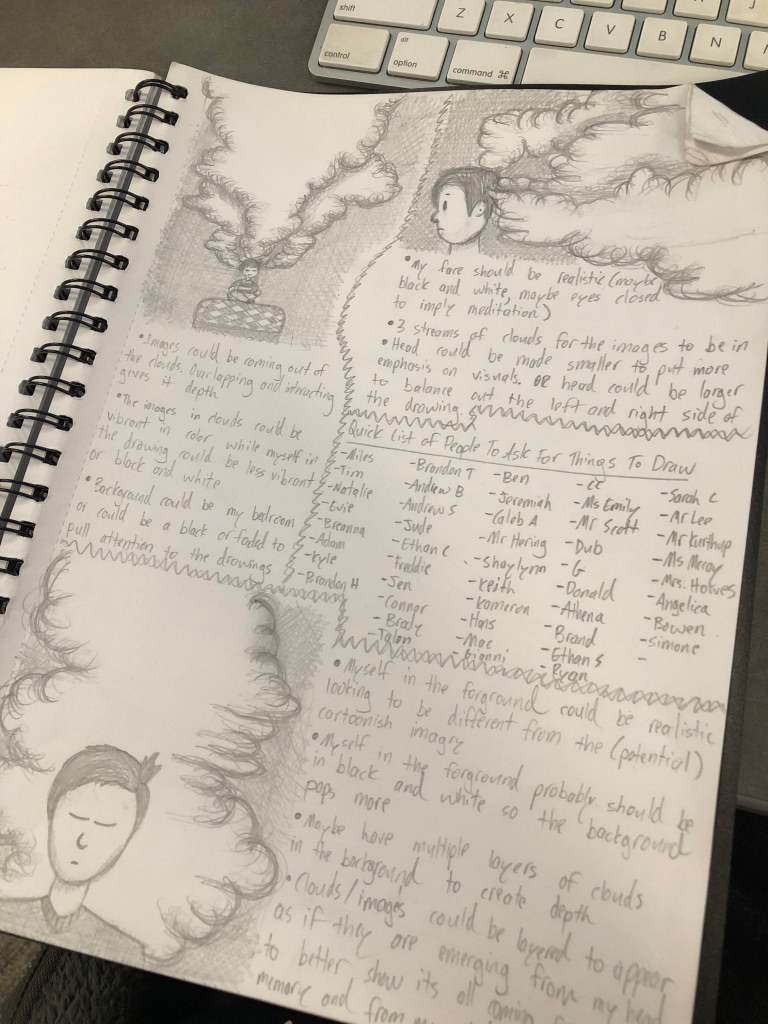 shift
Z X C V B N
control
alt
option
command ⌘
• Images could be coming out of
the clouds. Overlapping and interacting
gives it depth
• The images in clouds could be
vibrant in color while myself in
the drawing could be less vibrant
or black and white
• Background could be my bedroom
or could be a black or faded to
pull attention to the drawings
• My face should be realistic (maybe
black and white, maybe eyes closed
to imply meditation)
• 3 streams of clouds for the images to be in
• Head could be made smaller to put more
emphasis on visuals. OR head could be larger
to balance out the left and right side of
the drawing.
Quick List of People To Ask For Things To Draw
- Miles
- Tim
- Natalie
- Evie
- Breanna
- Adam
- Kyle
- Brandon H
- Brandon T
- Andrew B
- Andrew S
- Jude
- Ethan C
- Freddie
- Jen
- Connor
- Brody
- Talon
- Ben
- Jeremiah
- Caleb A
- Mr Haring
- Shaylynn
- Keith
- Kameron
- Hans
- Mac
- Gianni
- CC
- Ms Emily
- Mr Scott
- Dub
- G
- Donald
- Athena
- Brand
- Ethan S
- Ryan
- Sarah C
- Mr Lee
- Ms
- Mrs.
- Angelica
- Bowen
- Simone
-
• Myself in the forground could be realistic
looking to be different from the (potential)
cartoonish imagry
• Myself in the forground probably should be
in black and white so the background
pops more
• Maybe have multiple layers of clouds
in the background to create depth
• Clouds/images could be layered to appear
as if they are emerging from my head
to better show its all coming
memory and from